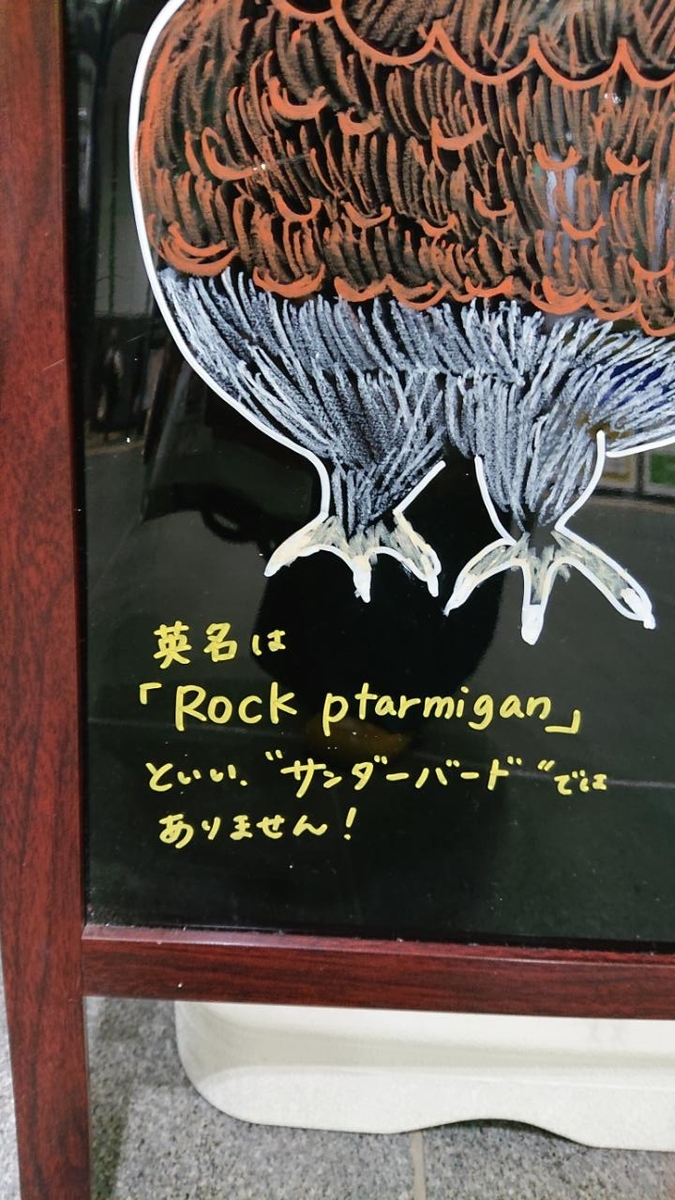 英名は
「Rock ptarmigan」
といい、"サンダーバード"では
ありません!